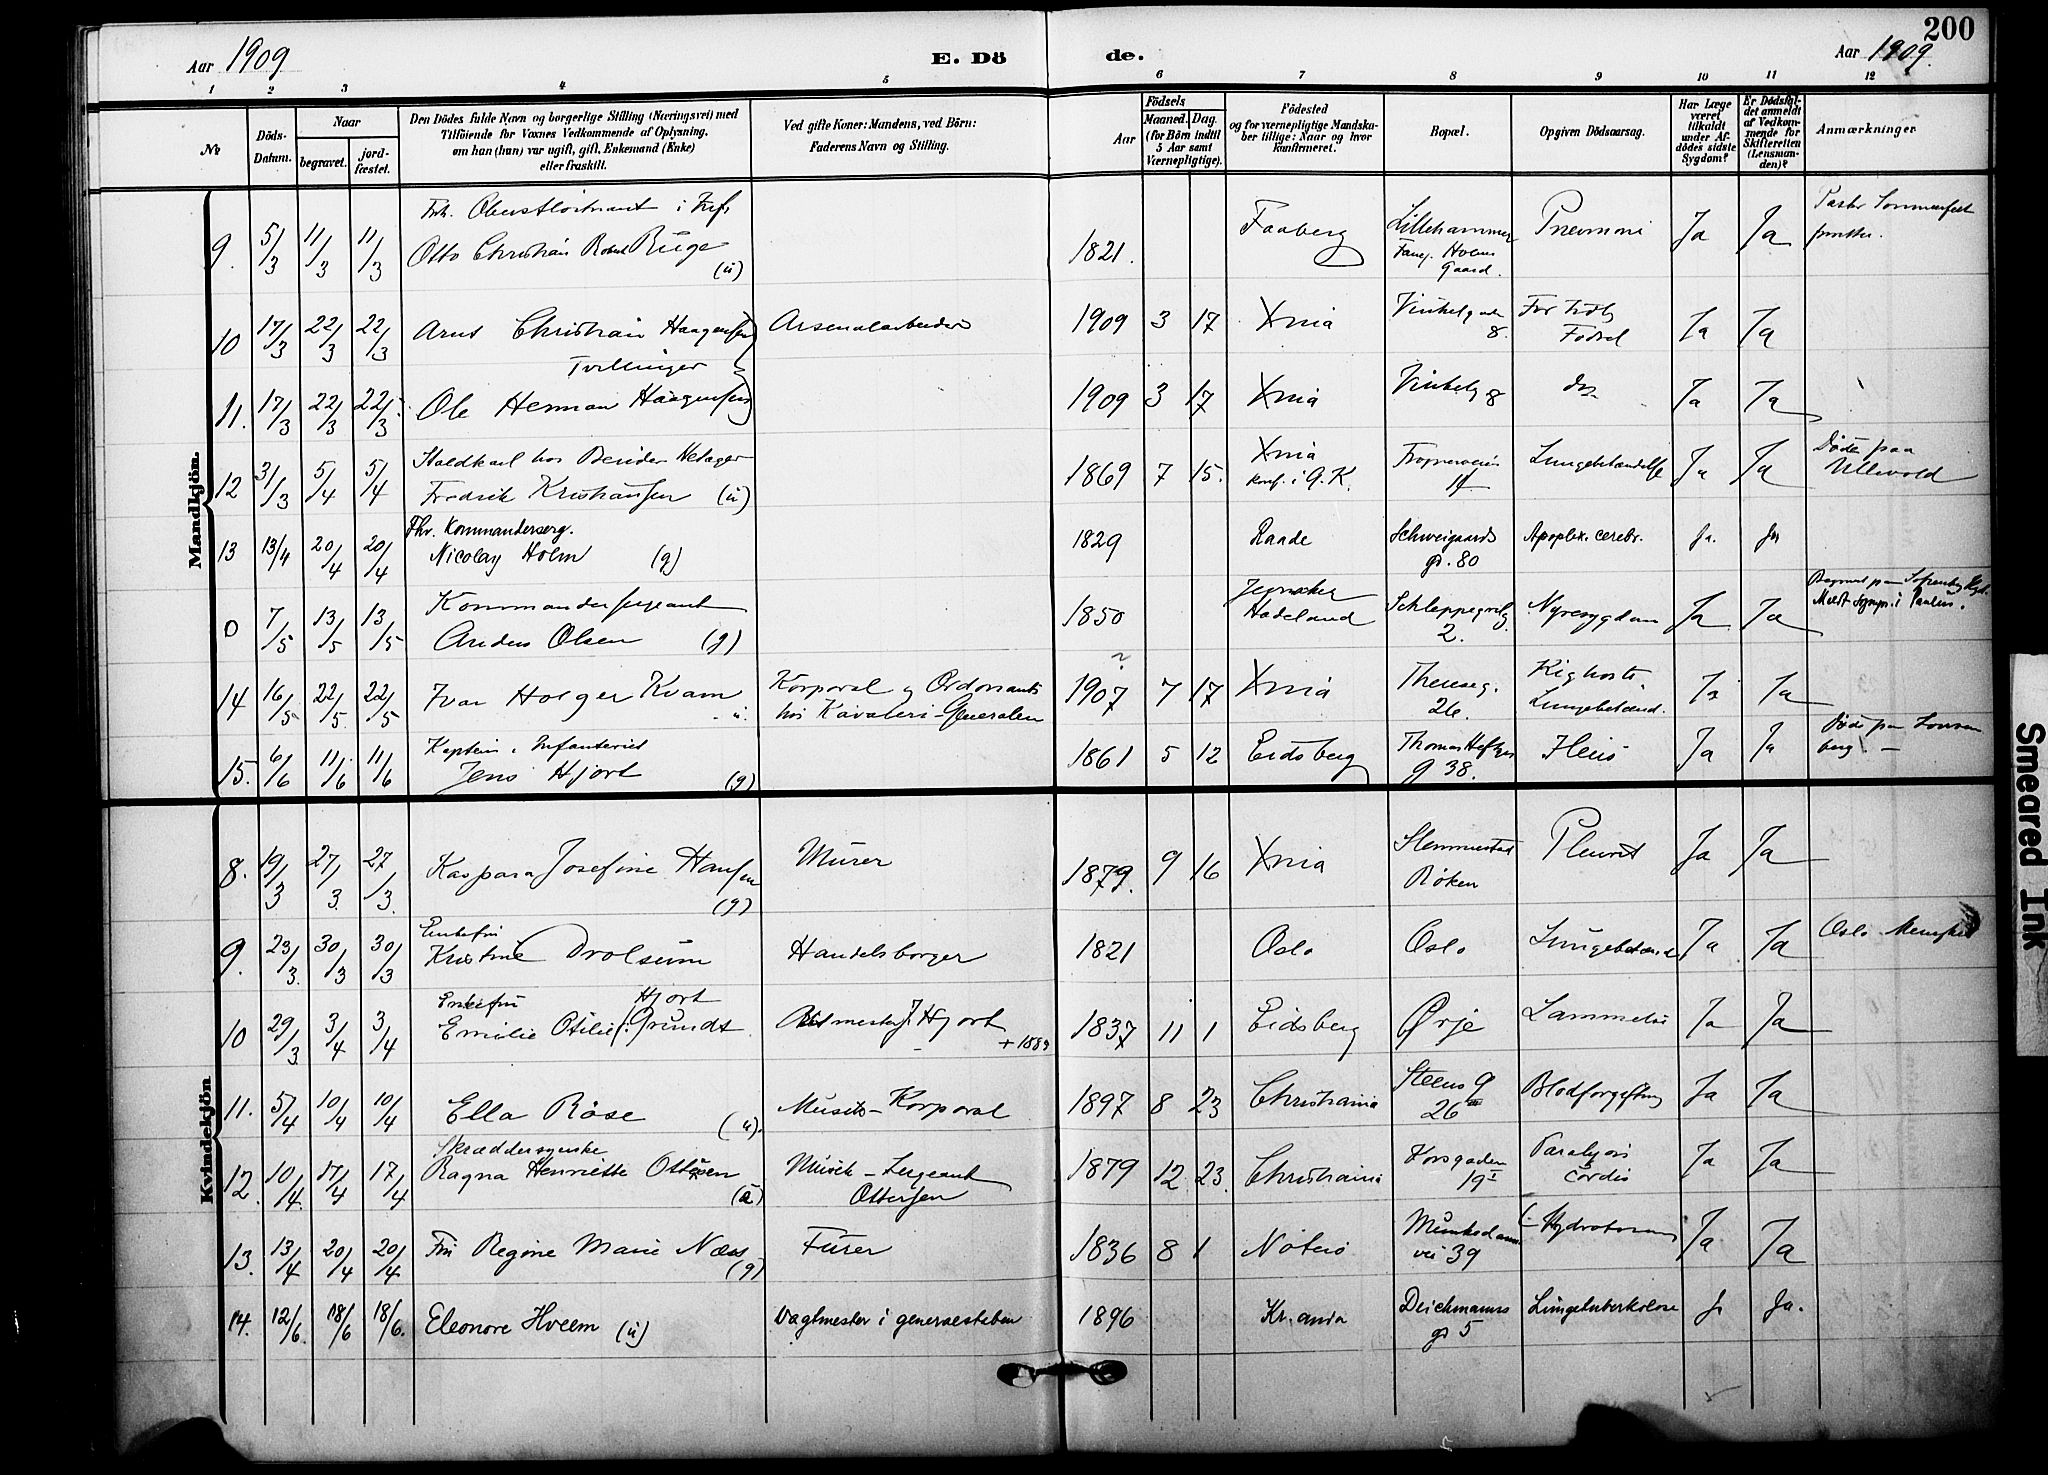 200
Aar 1909
E. Dö
de.
Aar 1909.
1 2 3 4 5 6 7 8 9 10 11 12
№
Döds-Datum.
Naar
begravet.
jord-fæstet.
Den Dödes fulde Navn og borgerlige Stilling (Næringsvei) med
Tilföiende for Voxnes Vedkommende af Oplysning,
om han (hun) var ugift, gift, Enkemand (Enke)
eller fraskilt.
Ved gifte Koner: Mandens, ved Börn:
Faderens Navn og Stilling.
Födsels
Aar
Maaned. Dag.
(for Börn indtil
5 Aar samt
Værnepligtige).
Födested
og for værnepligtige Mandska-
ber tillige: Naar og hvor
konfirmeret.
Bopæl.
Opgiven Dödsaarsag.
Har Læge
været
tilkaldt
under Af-
dödes sidste
Sygdom?
Er Dödsfal-
det anmeldt
af Vedkom-
mende for
Skifteretten
(Lensman-
den)?
Anmærkninger
Mandkjön.
9. 5/3 11/3 11/3 Otto Christian Robert Ruge (u) 1821. Faaberg Lillehammer Pneumoni Ja Ja
10 17/3 22/3 22/3 Christian Haagensen Arsenalarbeider 1909 3 17 Xnia 8. Födsel Ja Ja
Tvillinger
11. 17/3 22/3 22/3 Ole Herman Haagensen 1909 3 17 Xnia 8 do. Ja Ja
12 31/3 5/4 5/4 Fredrik Kristiansen (u) 1869 7 15. Xnia Konf. i G. K. Ja Ja Döde paa Ullevold
Fhv. Kommanderserg.
13 13/4 20/4 20/4 Nicolay Holm (g) 1829 Raade Schweigaards gd. 80 Apoplex. cerebr. Ja. Ja
Kommandersergeant
0 7/5 13/5 13/5 Anders Olsen (g) 1850 Jevnaker Hadeland Schleppegrelg. 2. Nyresygdom Ja Ja
14 16/5 22/5 22/5 Ivar Holger Kvam u. Korporal og Ordonants hos Kavaleri-Generalen 1907 7 17 Xnia Thereseg. 26. Kighoste Lungebetænd. Ja Ja
Kaptein i Infanteriet
15. 6/6 11/6 11/6 Jens Hjort (g) 1861 5 12 Eidsberg Thomas Heftyes g 38. Ileus Ja Ja
Kvindekjön.
8. 19/3 27/3 27/3. Kaspara Josefine Hansen (g) Murer 1879. 9 16 Xnia Slemmestad Röken Pleurit Ja Ja
Enkefru
9. 23/3. 30/3 30/3 Kristine Drolsum Handelsborger 1821 Oslo Oslo Lungebetænd Ja Ja Oslo Menighed
Enkefru Hjort
10 29/3 3/4 3/4 Emilie Otilie f. Grundt J. Hjort + 1889 1837 11 1 Eidsberg Ørje Lammelse Ja Ja
11. 5/4 10/4 10/4 Ella Röse (u). Musik-Korporal 1897 8 23 Christiania Steens g 26 III Blodforgiftning Ja Ja
Skræddersyerske
12. 10/4. 17/4 17/4 Ragna Henriette Ottesen (u) Musik-Sergeant Ottersen 1879 12 23. Christiania Korsgaden 19 I Paralysis cordis Ja Ja
13. 13/4 20/4 20/4 Fru Regine Marie Næss (g) Furer 1836 8 1 Nöterö Munkedams vei 39 Ja Ja
14. 12/6. 18/6 18/6. Eleonore Hveem (u) Vagtmester i generalstaben 1896 Kr.ania Deichmanns gd 5 Lungetuberkolose Ja Ja.
Smeared Ink